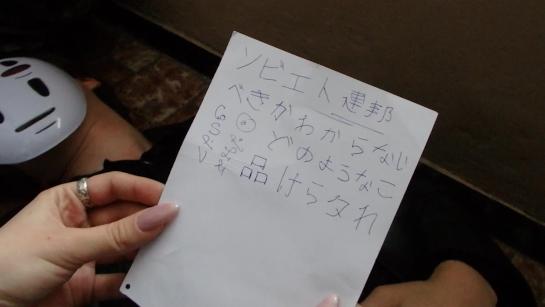 ソビエト連邦
べきかわからない
どのようなこ
品けらタれ